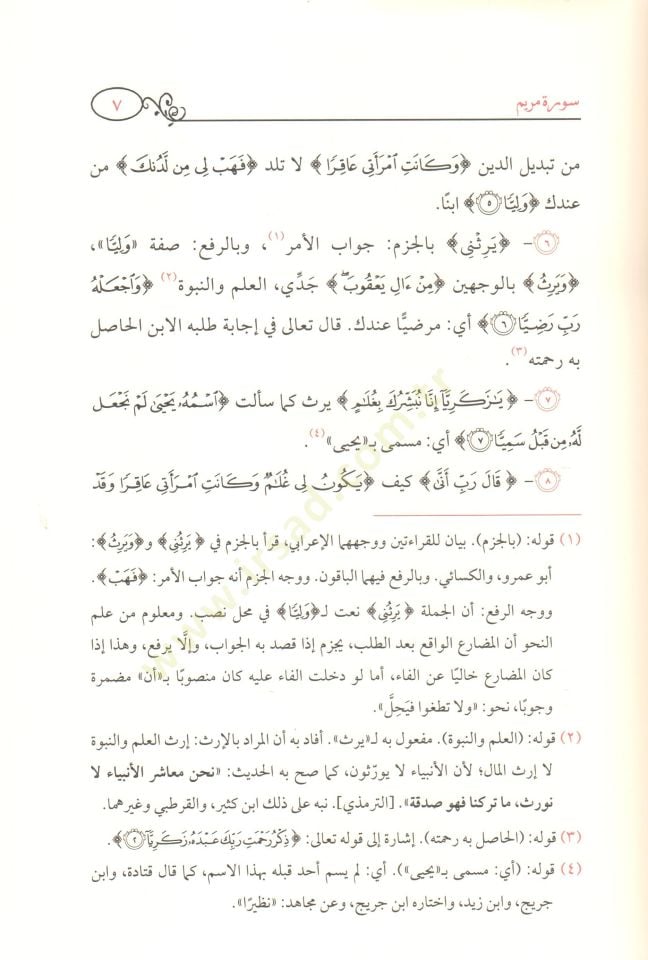 سورة مريم
٧
من تبديل الدين ﴿وَكَانَتِ ٱمۡرَأَتِي عَاقِرٗا﴾ لا تلد ﴿فَهَبۡ لِي مِن لَّدُنكَ﴾ من
عندك ﴿وَلِيّٗا ۝٥﴾ ابنًا.
٦- ﴿يَرِثُنِي﴾ بالجزم: جواب الأمر(١)، وبالرفع: صفة «وَلِيًّا»،
﴿وَيَرِثُ﴾ بالوجهين ﴿مِنۡ ءَالِ يَعۡقُوبَۖ﴾ جَدِّي، العلم والنبوة(٢) ﴿وَٱجۡعَلۡهُ
رَبِّ رَضِيّٗا ۝٦﴾ أي: مرضيًّا عندك. قال تعالى في إجابة طلبه الابن الحاصل
به رحمته(٣).
٧- ﴿يَٰزَكَرِيَّآ إِنَّا نُبَشِّرُكَ بِغُلَٰمٍ﴾ يرث كما سألت ﴿ٱسۡمُهُۥ يَحۡيَىٰ لَمۡ نَجۡعَل
لَّهُۥ مِن قَبۡلُ سَمِيّٗا ۝٧﴾ أي: مسمى بـ«يحيى»(٤).
٨- ﴿قَالَ رَبِّ أَنَّىٰ﴾ كيف ﴿يَكُونُ لِي غُلَٰمٞ وَكَانَتِ ٱمۡرَأَتِي عَاقِرٗا وَقَدۡ
(١) قوله: (بالجزم). بيان للقراءتين ووجههما الإعرابي، قرأ بالجزم في ﴿يَرِثُنِي﴾ و﴿وَيَرِثُ﴾:
أبو عمرو، والكسائي. وبالرفع فيهما الباقون. ووجه الجزم أنه جواب الأمر: ﴿فَهَبۡ﴾.
ووجه الرفع: أن الجملة ﴿يَرِثُنِي﴾ نعت لـ﴿وَلِيّٗا﴾ في محل نصب. ومعلوم من علم
النحو أن المضارع الواقع بعد الطلب، يجزم إذا قصد به الجواب، وإلَّا يرفع، وهذا إذا
كان المضارع خاليًا عن الفاء، أما لو دخلت الفاء عليه كان منصوبًا بـ«أن» مضمرة
وجوبًا، نحو: «ولا تطغوا فيَحِلَّ».
(٢) قوله: (العلم والنبوة). مفعول به لـ«يرث». أفاد به أن المراد بالإرث: إرث العلم والنبوة
لا إرث المال؛ لأن الأنبياء لا يورّثون، كما صح به الحديث: «نحن معاشر الأنبياء لا
نورث، ما تركنا فهو صدقة». [الترمذي]. نبه على ذلك ابن كثير، والقرطبي وغيرهما.
(٣) قوله: (الحاصل به رحمته). إشارة إلى قوله تعالى: ﴿ذِكۡرُ رَحۡمَتِ رَبِّكَ عَبۡدَهُۥ زَكَرِيَّآ ۝٢﴾.
(٤) قوله: (أي: مسمى بـ«يحيى»). أي: لم يسم أحد قبله بهذا الاسم، كما قال قتادة، وابن
جريج، وابن زيد، واختاره ابن جريج، وعن مجاهد: «نظيرًا».
www.irsad.com.tr